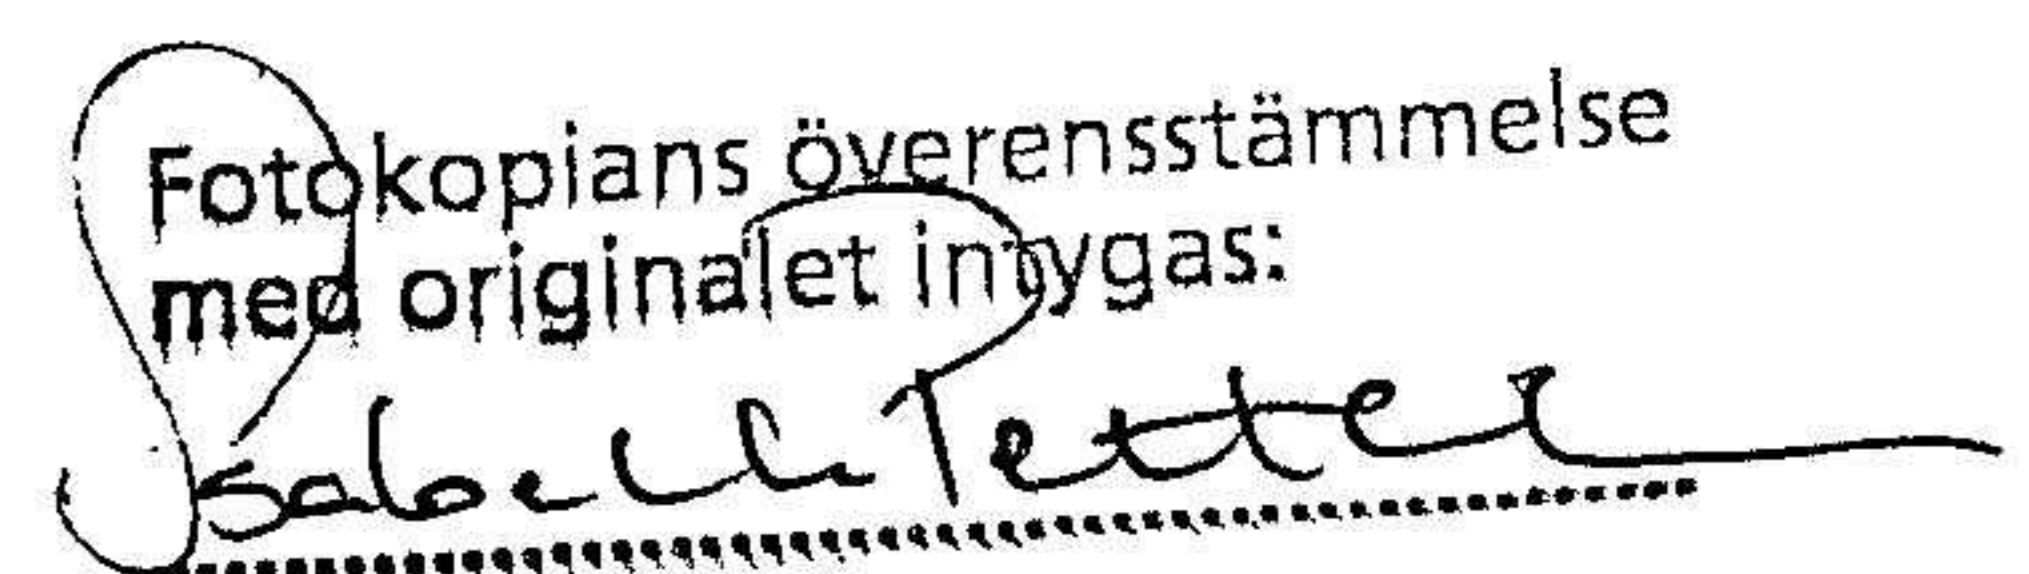 Fotokopians överensstämmelse
med originalet intygas:
Isabella Tetter